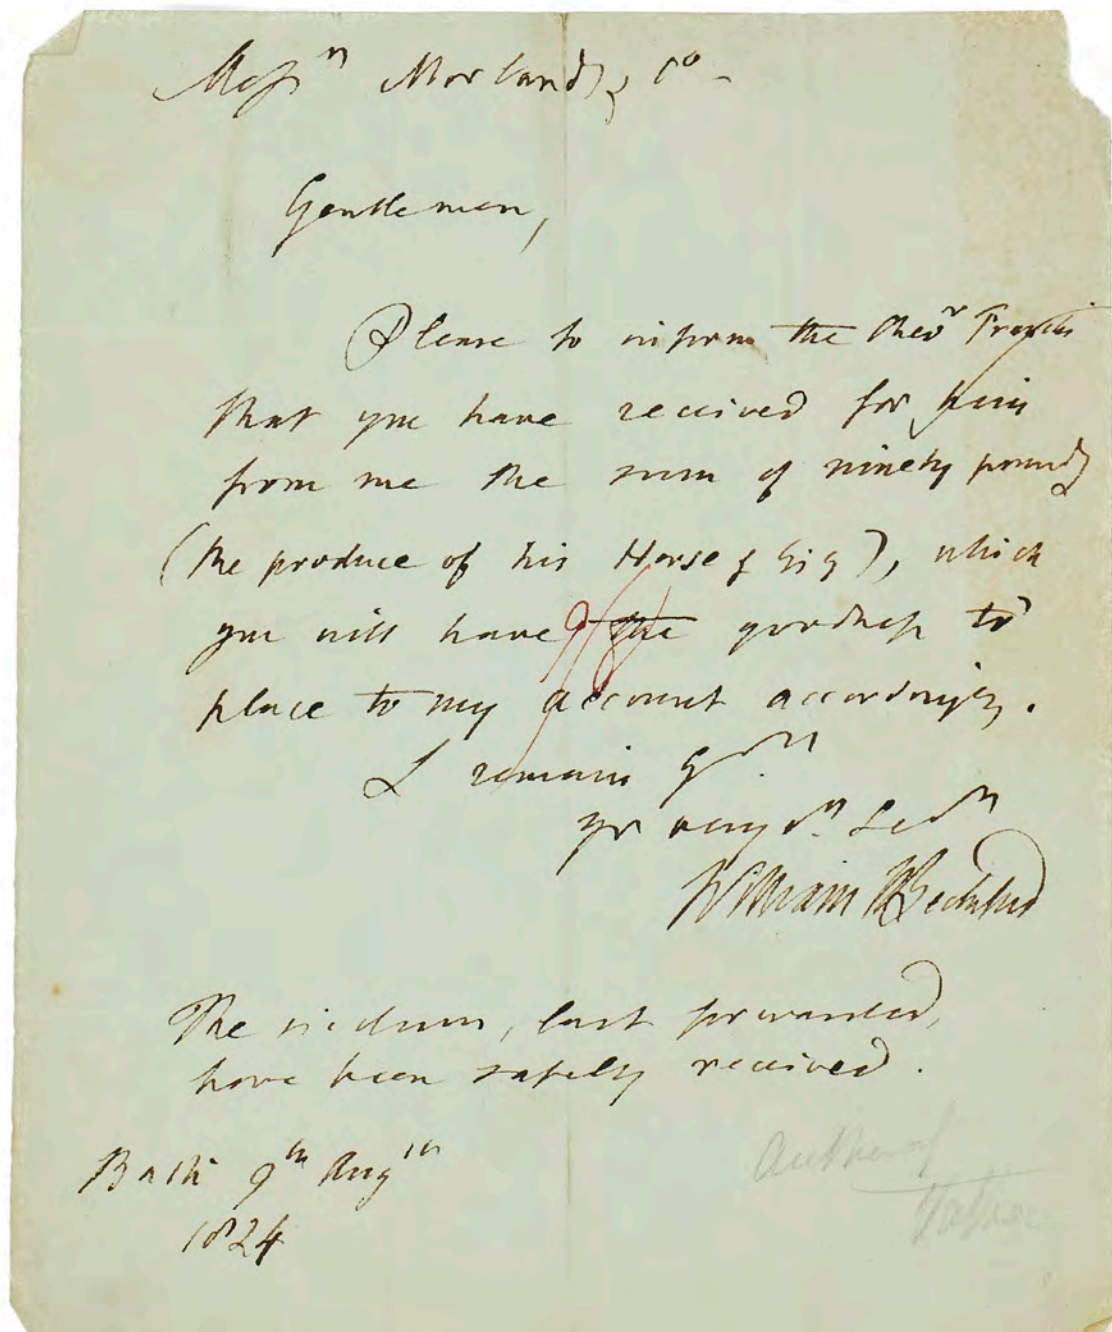 Messrs Morlands & Co -
Gentlemen,
Please to inform the Revd
that you have received for him
from me the sum of ninety pounds
(the produce of his Horse & Gig), which
you will have the goodness to
place to my account accordingly.
I remain Gn
yr very
William Beckford
The , last forwarded,
have been safely received.
Bath 9th Augst
1824
Author of
Vathek